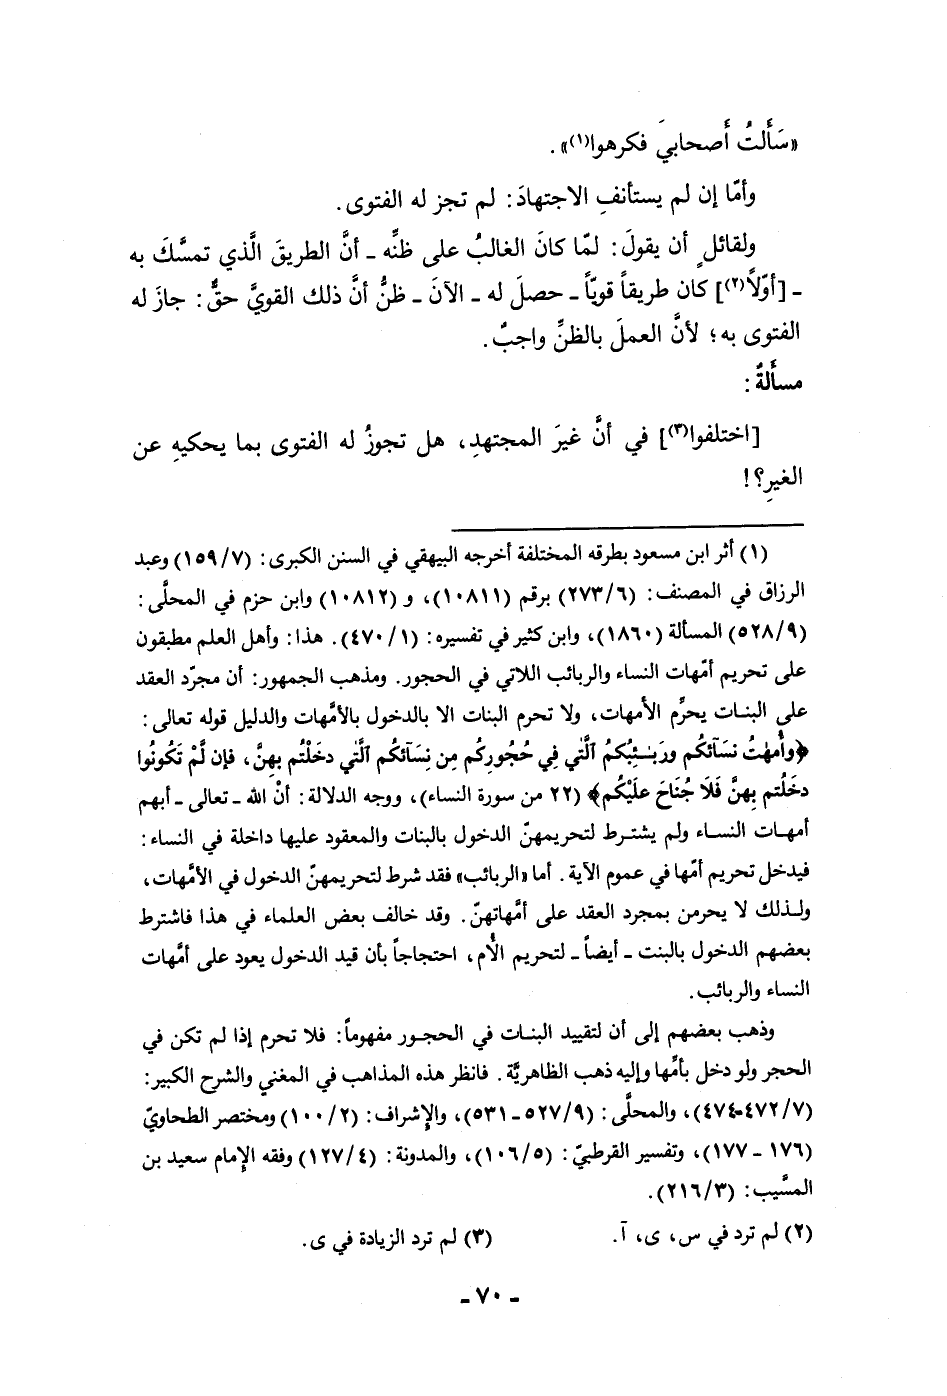 «سَأَلتُ أَصحابيَ فكرهوا(١)».
وأمّا إن لم يستأنفِ الاجتهادَ: لم تجز له الفتوى.
ولقائلٍ أن يقولَ: لمّا كانَ الغالبُ على ظنِّه ـ أنَّ الطريقَ الَّذي تمسَّكَ به
ـ [أوّلاً(٢)] كان طريقاً قويّاً ـ حصلَ له ـ الآنَ ـ ظنُّ أنَّ ذلك القويَّ حقٌّ: جازَ له
الفتوى به؛ لأنَّ العملَ بالظنِّ واجبٌ.
مسأَلةٌ:
[اختلفوا(٣)] في أنَّ غيرَ المجتهدِ، هل تجوزُ له الفتوى بما يحكيهِ عن
الغيرِ؟!
(١) أثر ابن مسعود بطرقه المختلفة أخرجه البيهقي في السنن الكبرى: (١٥٩/٧) وعبد
الرزاق في المصنف: (٢٧٣/٦) برقم (١٠٨١١)، و (١٠٨١٢) وابن حزم في المحلَّى:
(٥٢٨/٩) المسألة (١٨٦٠)، وابن كثير في تفسيره: (٤٧٠/١). هذا: وأهل العلم مطبقون
على تحريم أمّهات النساء والربائب اللاتي في الحجور. ومذهب الجمهور: أن مجرّد العقد
على البنات يحرِّم الأمهات، ولا تحرم البنات الا بالدخول بالأمَّهات والدليل قوله تعالى:
﴿وأُمهٰتُ نسَآئكُم وربَـٰئِبُكمُ الَّتٰي فِي حُجُورِكُم مِن نِسَآئكُم الَّتٰي دخَلْتُم بِهِنَّ، فإن لَّمْ تَكُونُوا
دخَلُتم بِهنَّ فَلَا جُنَاحَ علَيْكُم﴾ (٢٢ من سورة النساء)، ووجه الدلالة: أنَّ الله ـ تعالى ـ أبهم
أمهات النساء ولم يشترط لتحريمهنّ الدخول بالبنات والمعقود عليها داخلة في النساء:
فيدخل تحريم أمّها في عموم الآية. أما «الربائب» فقد شرط لتحريمهنّ الدخول في الأمَّهات،
ولذلك لا يحرمن بمجرد العقد على أمَّهاتهنّ. وقد خالف بعض العلماء في هذا فاشترط
بعضهم الدخول بالبنت ـ أيضاً ـ لتحريم الأُم، احتجاجاً بأن قيد الدخول يعود على أمَّهات
النساء والربائب.
وذهب بعضهم إلى أن لتقييد البنات في الحجور مفهوماً: فلا تحرم إذا لم تكن في
الحجر ولو دخل بأمِّها وإليه ذهب الظاهريَّة. فانظر هذه المذاهب في المغني والشرح الكبير:
(٤٧٢/٧-٤٧٤)، والمحلَّى: (٥٢٧/٩ـ ٥٣١)، والإشراف: (١٠٠/٢) ومختصر الطحاويّ
(١٧٦ ـ ١٧٧)، وتفسير القرطبيّ: (١٠٦/٥)، والمدونة: (١٢٧/٤) وفقه الإمام سعيد بن
المسَّيب: (٢١٦/٣).
(٢) لم ترد في س، ى، آ. (٣) لم ترد الزيادة في ى.
ـ ٧٠ ـ